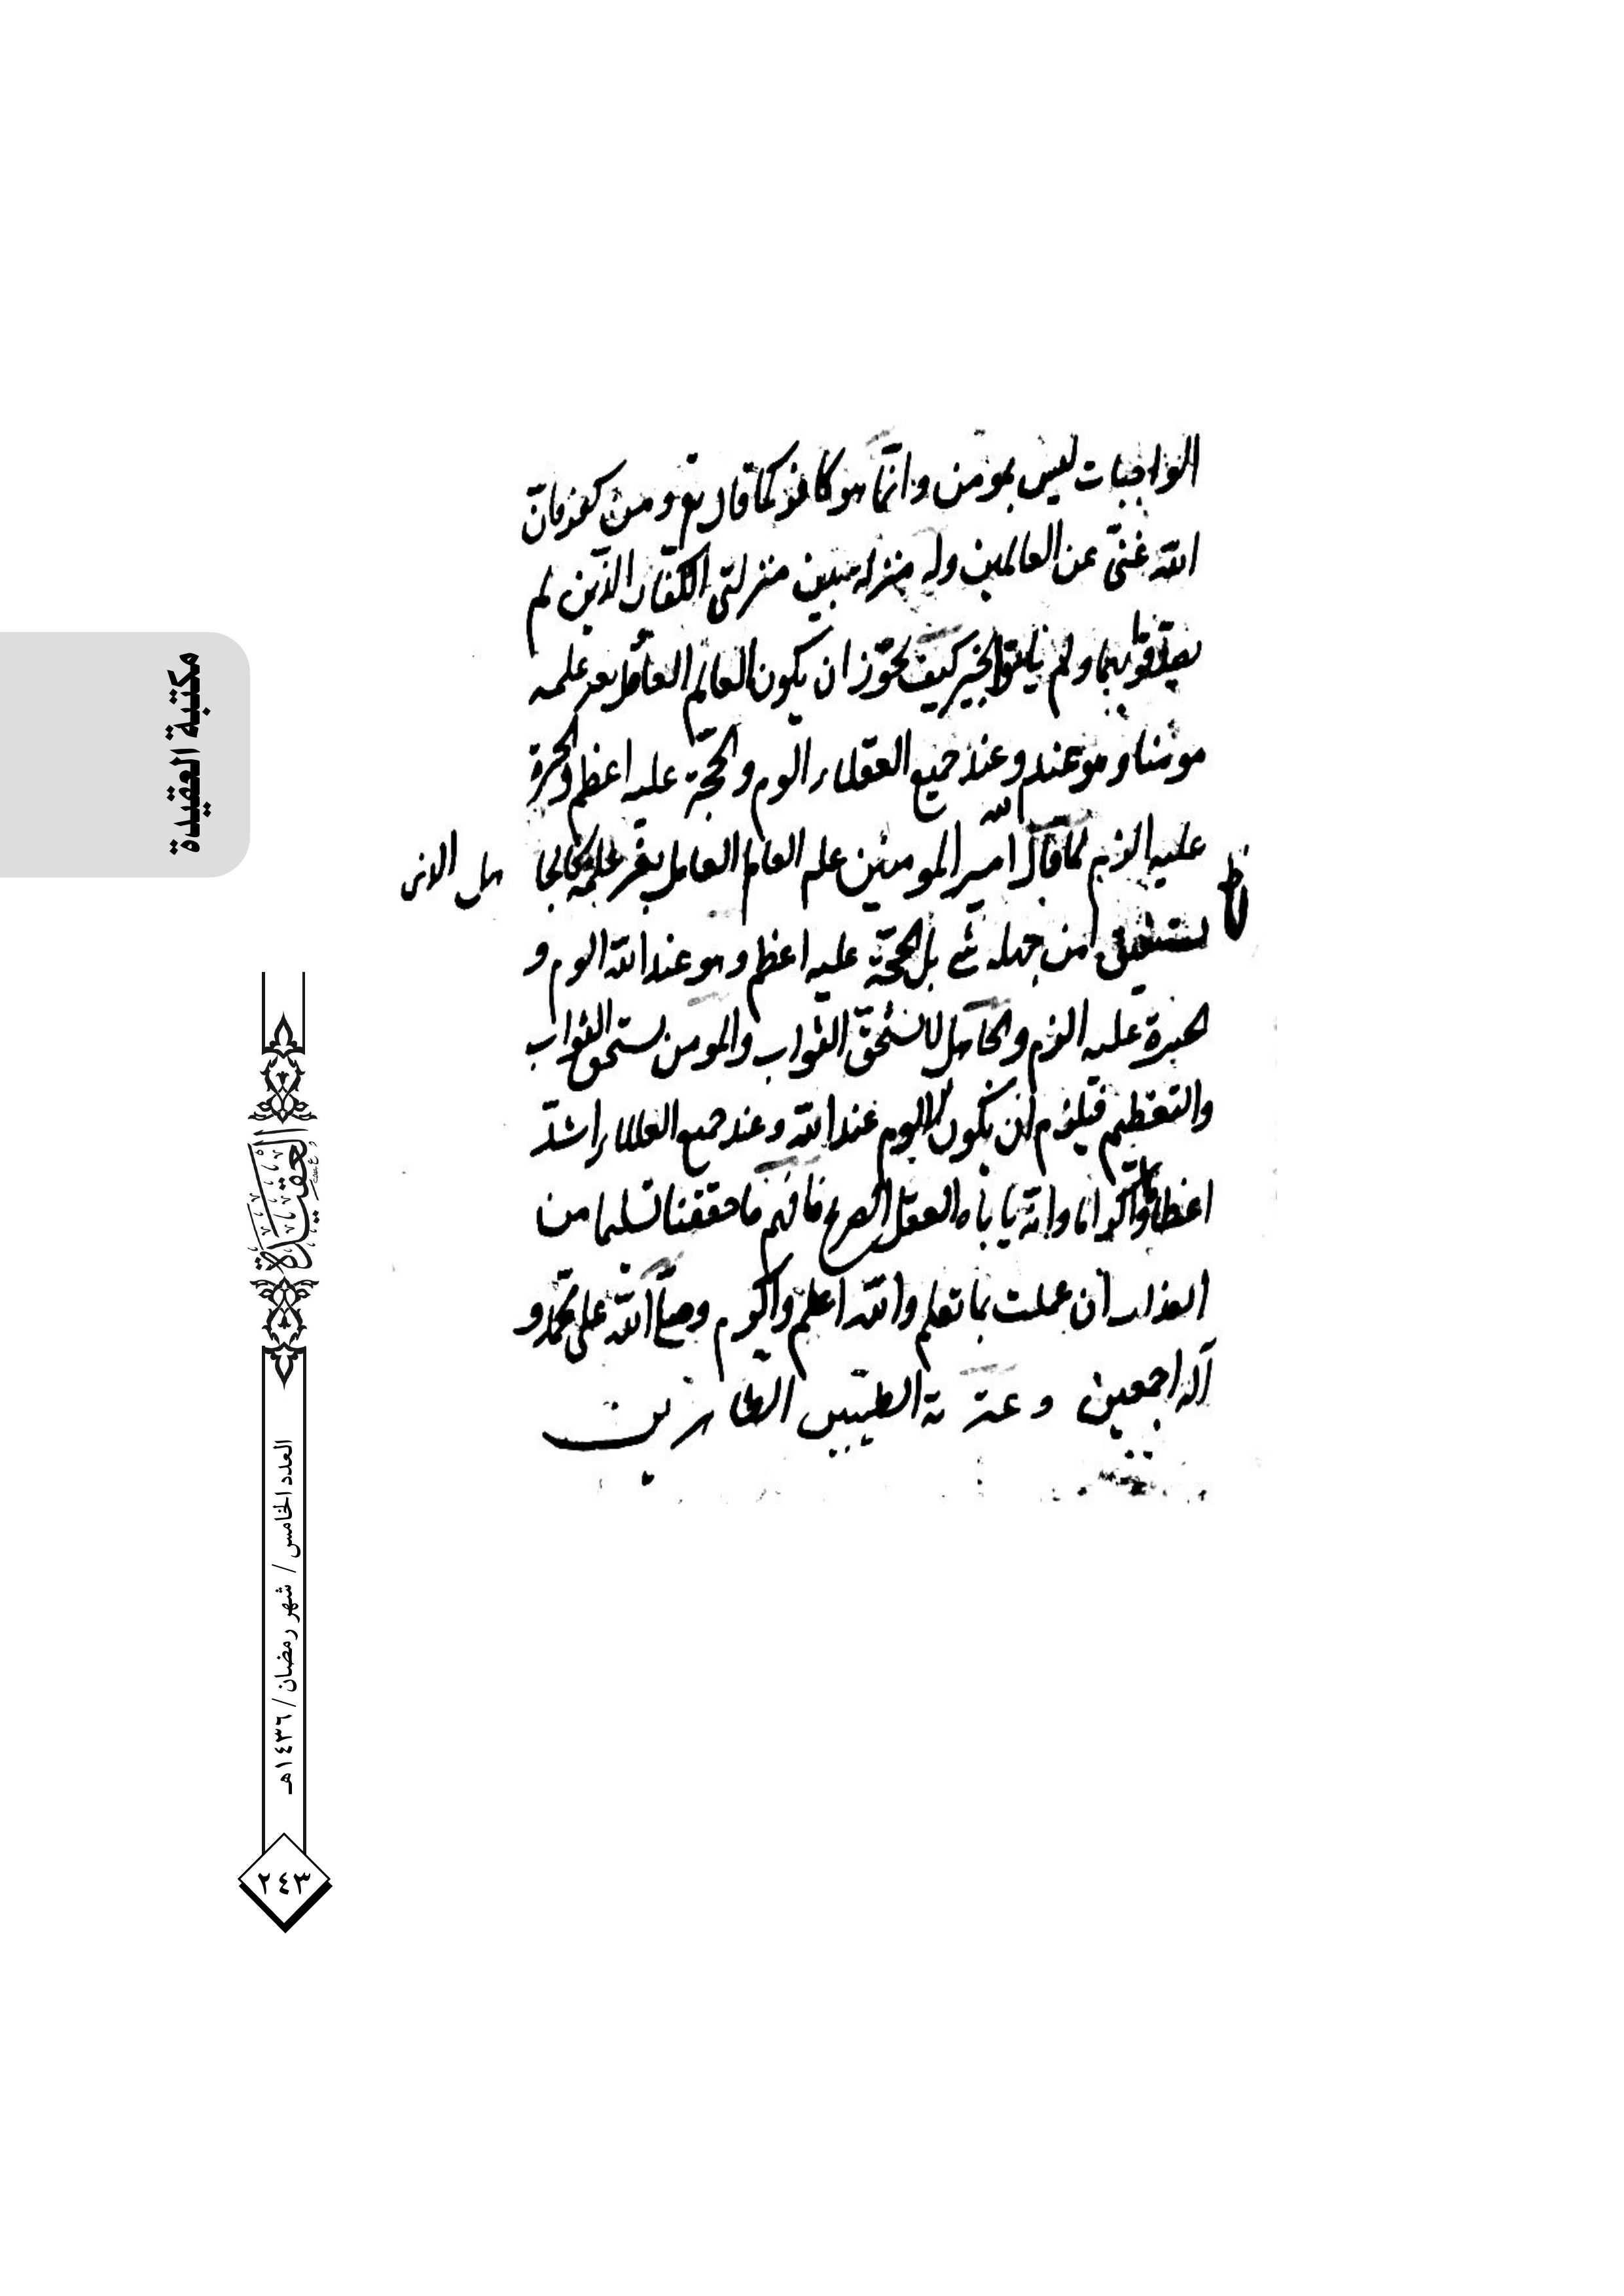 مكتبة العقيدة
الواجبات ليس بمومن وانما هو كافر كما قال تع ومن كفر فان
الله غنى عن العالمين وله منزلة بين منزلتى الكفار الذين لم
يصدقوا بهما ولم الخير كيف يجوز ان يكون العالم بعد علمه
مومنا وهو عند وعند جميع العقلاء الوم والحجة عليه اعظم والحسرة
عليه الزم كما قال امير المومنين علم العالم العامل بغير علمه كالجا
هل الذى
لا يستفيق من جهله بل الحجة عليه اعظم وهو عند الله الوم و
الحسرة عليه الزم والجاهل لا يستحق الثواب والمومن يستحق الثواب
والتعظيم فيلزم ان يكون الالوم عند الله وعند جميع العقلاء اشد
اعظاما واكراما وانه يأباه العقل الصريح فافهم ما حققنا تسلم من
العذاب ان عملت بما تعلم والله اعلم واكرم وصلى الله على محمد و
آله اجمعين وعترته الطيبين الطاهرين
العقيدة
العدد الخامس / شهر رمضان / ١٤٣٦هـ
٢٤٣